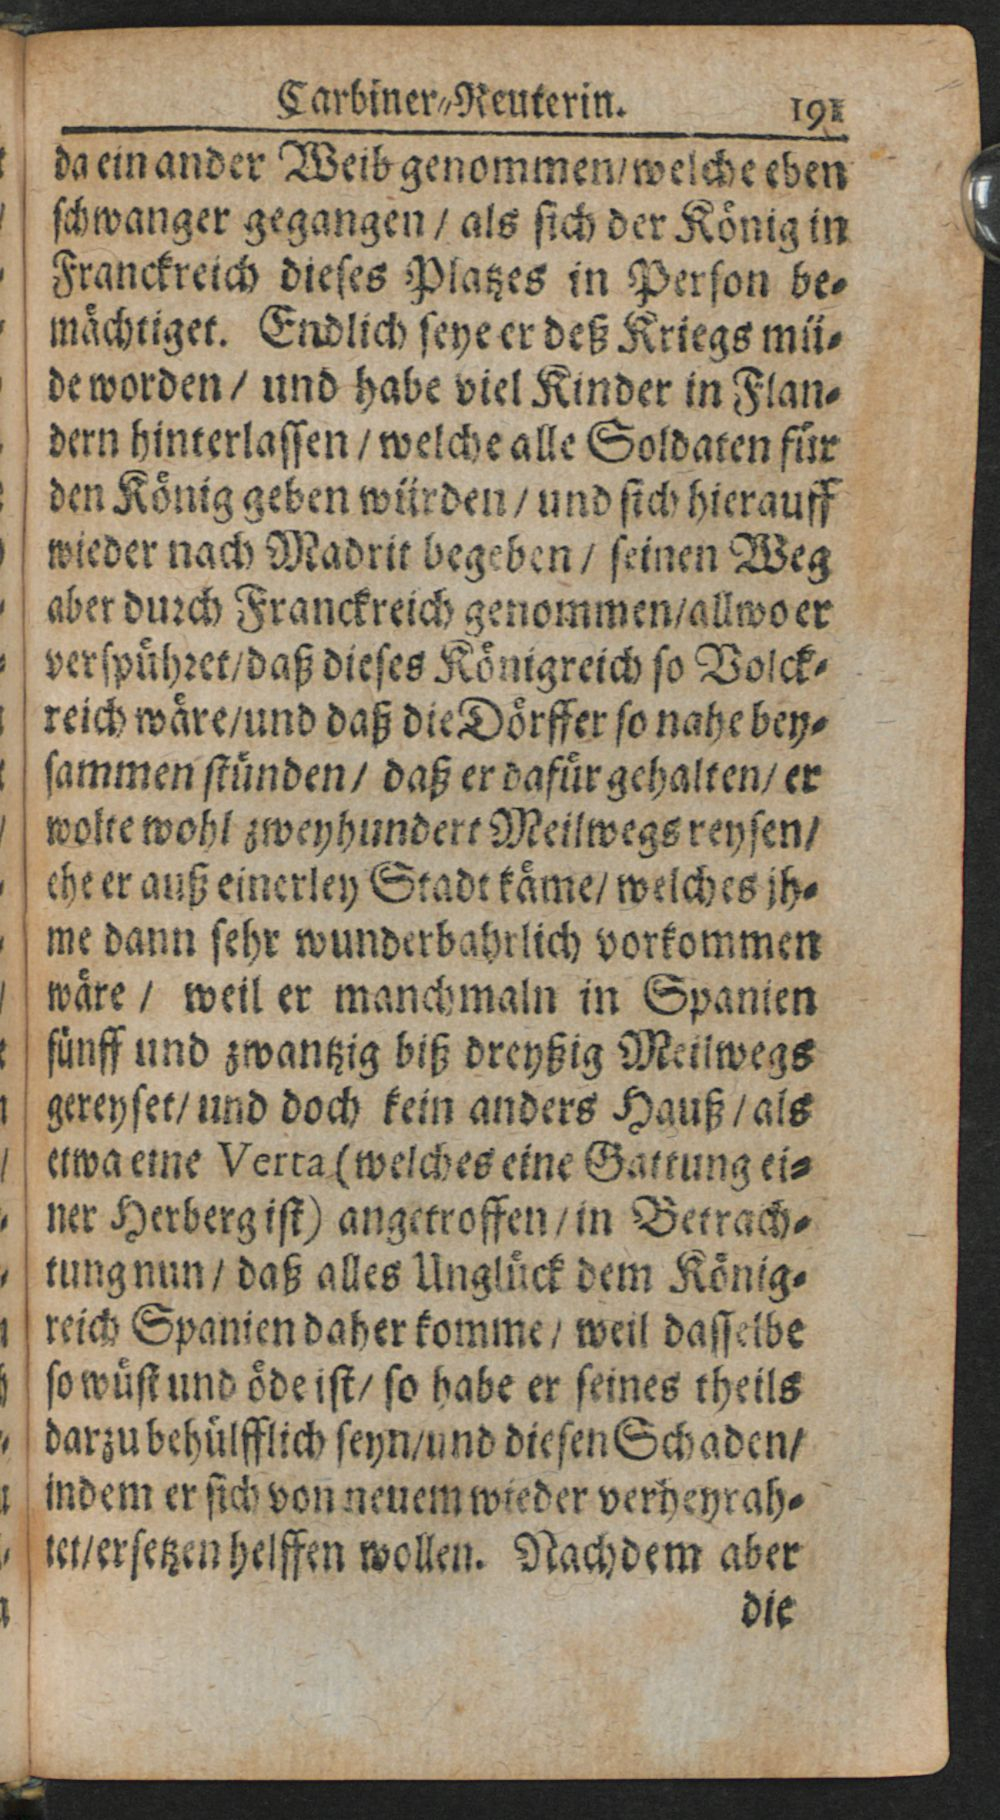 Carbiner-Reuterin. 191
da ein ander Weib genommen/ welche eben
schwanger gegangen / als sich der König in
Franckreich dieses Platzes in Person be-
mächtiget. Endlich seye er deß Kriegs mü-
de worden / und habe viel Kinder in Flan-
dern hinterlassen / welche alle Soldaten für
den König geben würden / und sich hierauff
wieder nach Madrit begeben / seinen Weg
aber durch Franckreich genommen/ allwo er
verspühret/ daß dieses Königreich so Volck-
reich wäre/ und daß die Dörffer so nahe bey-
sammen stünden/ daß er dafür gehalten/ er
wolte wohl zweyhundert Meilwegs reysen/
ehe er auß einerley Stadt käme/ welches jh-
me dann sehr wunderbahrlich vorkommen
wäre / weil er manchmaln in Spanien
fünff und zwantzig biß dreyßig Meilwegs
gereyset/ und doch kein anders Hauß / als
etwa eine Verta (welches eine Gattung ei-
ner Herberg ist) angetroffen / in Betrach-
tung nun / daß alles Unglück dem König-
reich Spanien daher komme / weil dasselbe
so wüst und öde ist/ so habe er seines theils
darzu behülfflich seyn/ und diesen Schaden/
indem er sich von neuem wieder verheyrah-
tet/ ersetzen helffen wollen. Nachdem aber
die